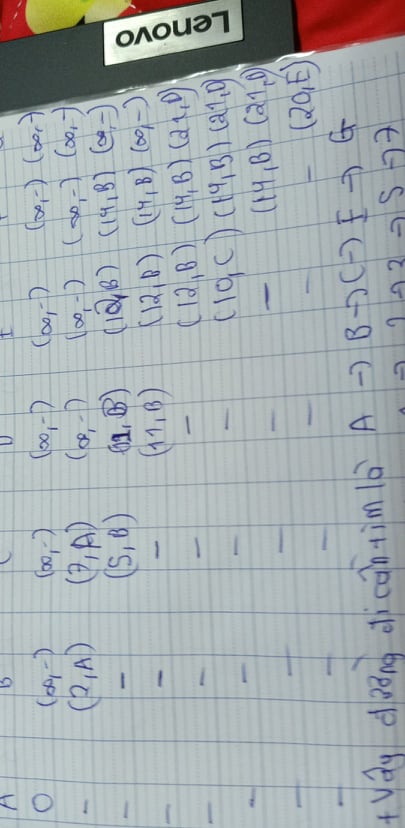 A B C D E F G
0 (∞,-) (∞,-) (∞,-) (∞,-) (∞,-) (∞,-)
- (2,A) (7,A) (∞,-) (∞,-) (∞,-) (∞,-)
- - (5,B) (11,B) (12,B) (14,B) (∞,-)
- - - (11,B) (12,B) (14,B) (∞,-)
- - - - (12,B) (14,B) (21,D)
- - - - (10,C) (14,B) (21,D)
- - - - - (14,B) (21,D)
- - - - - - (20,E)
+ Vậy đường đi cần tìm là A → B → C → E → G
→ 2 → 3 → 5 → 7
Lenovo